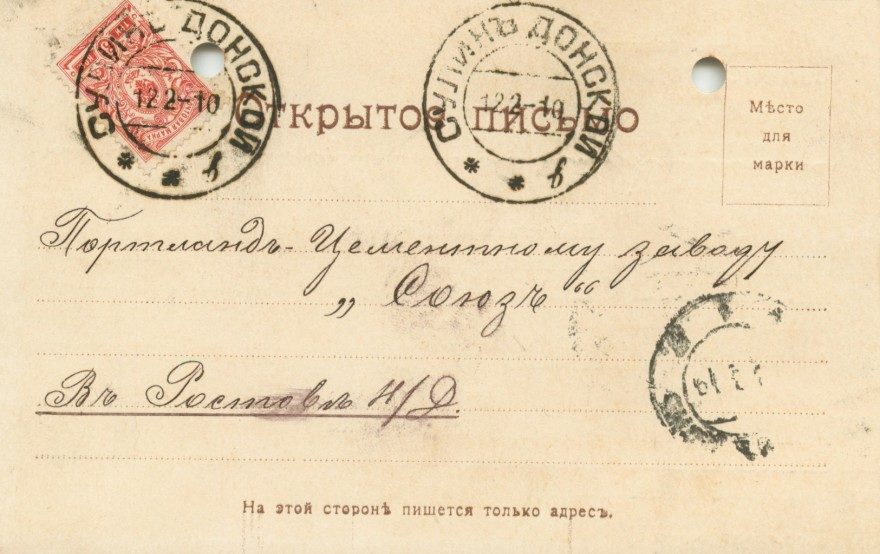 СУЛИНЪ ДОНСКОЙ
12 2 - 10
СУЛИНЪ ДОНСКОЙ
12 2 - 10
Открытое письмо
Мѣсто
для
марки
Портландъ-Цементному заводу
„Союзъ“
Въ Ростовѣ Н/Д.
На этой сторонѣ пишется только адресъ.